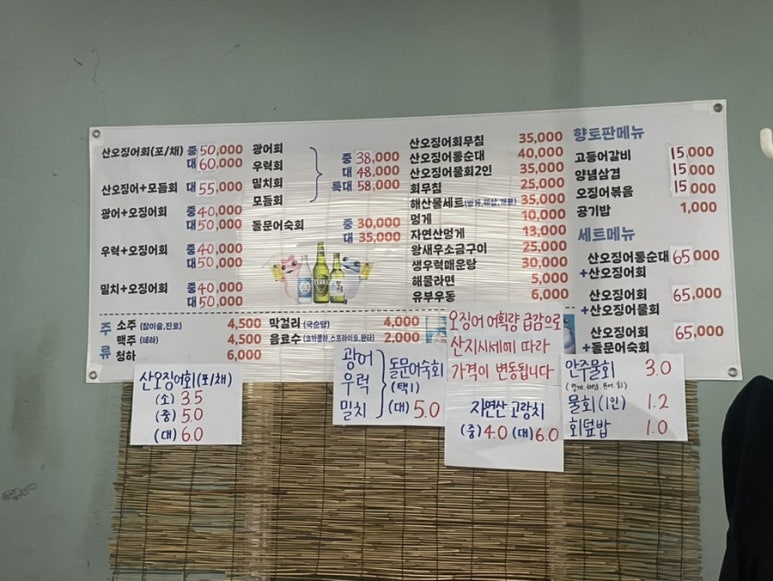 산오징어회(포/채) 중 50,000
대 60,000
산오징어+모듬회 대 55,000
광어+오징어회 중 40,000
대 50,000
우럭+오징어회 중 40,000
대 50,000
밀치+오징어회 중 40,000
대 50,000
광어회
우럭회
밀치회
모듬회
중 38,000
대 48,000
특대 58,000
돌문어숙회 중 30,000
대 35,000
산오징어회무침 35,000
산오징어통순대 40,000
산오징어물회2인 35,000
회무침 25,000
해산물세트(멍게,해삼,개불) 35,000
멍게 10,000
자연산멍게 13,000
왕새우소금구이 25,000
생우럭매운탕 30,000
해물라면 5,000
유부우동 6,000
향토판메뉴
고등어갈비 15,000
양념삼겹 15,000
오징어볶음 15,000
공기밥 1,000
세트메뉴
산오징어통순대 65,000
+산오징어회
산오징어회 65,000
+산오징어물회
산오징어회 65,000
+돌문어숙회
주류
소주 (참이슬,진로) 4,500
맥주 (테라) 4,500
청하 6,000
막걸리 (국순당) 4,000
음료수 (코카콜라,스프라이트,환타) 2,000
산오징어회(포/채)
(소) 3.5
(중) 5.0
(대) 6.0
광어
우럭
밀치
돌문어숙회
(택1)
(대) 5.0
오징어 어획량 급감으로
산지시세에 따라
가격이 변동됩니다
자연산 고랑치
(중) 4.0 (대) 6.0
안주물회 3.0
물회(1인) 1.2
회덮밥 1.0